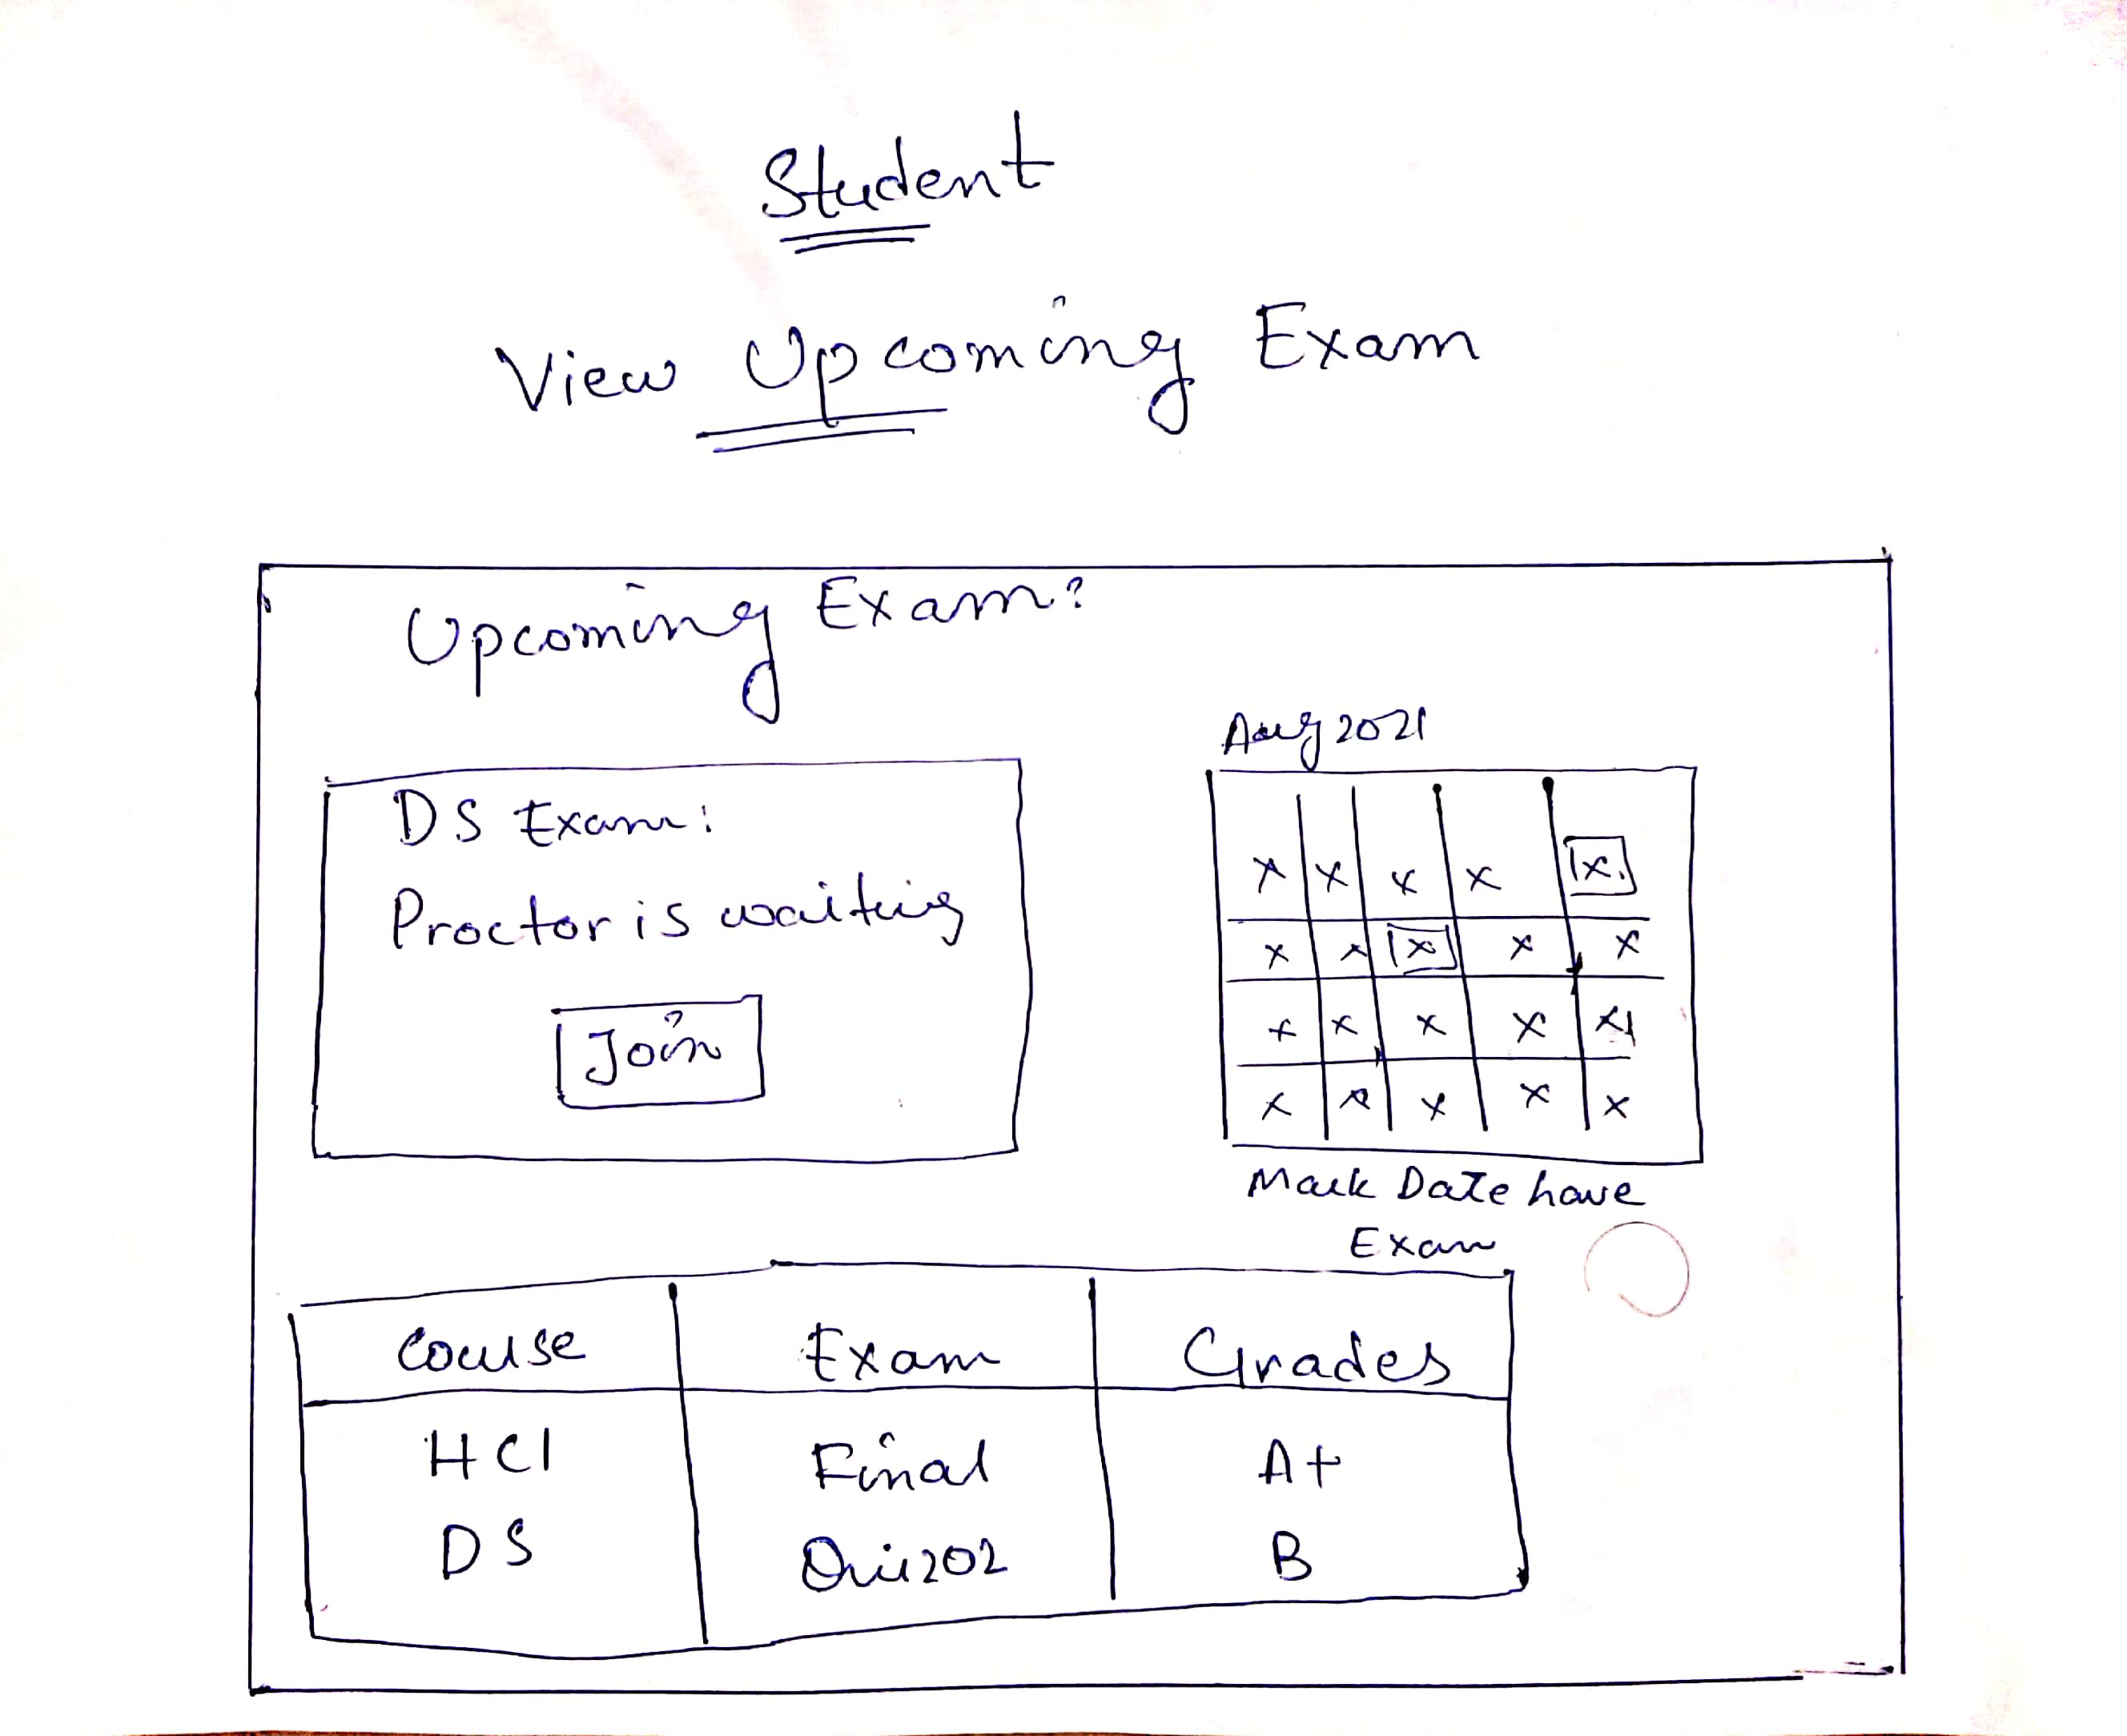 Student
View Upcoming Exam
Upcoming Exam?
DS Exam:
Proctor is waiting
Join
Aug 2021
x x x x x
x x x x x
x x x x x
x x x x x
Mark Date have
Exam
Course Exam Grades
HCI Final A+
DS Quiz02 B